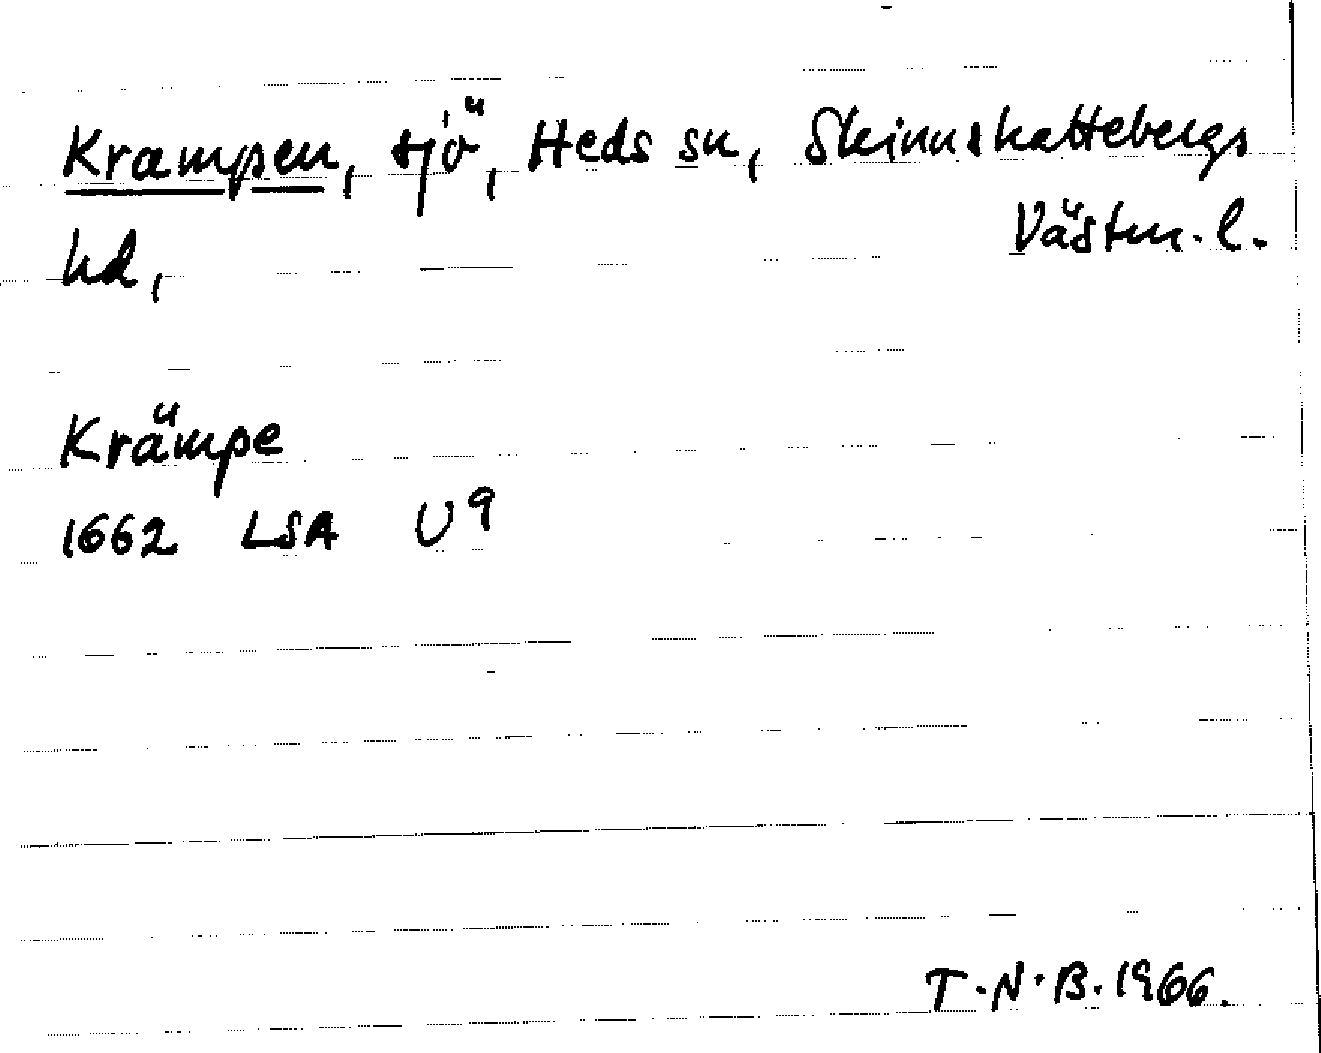 Krampen, sjö, Heds sn, Skinnskattebergs
hd,
Västm. l.
Krämpe
1662 LSA U9
T.N.B. 1966.